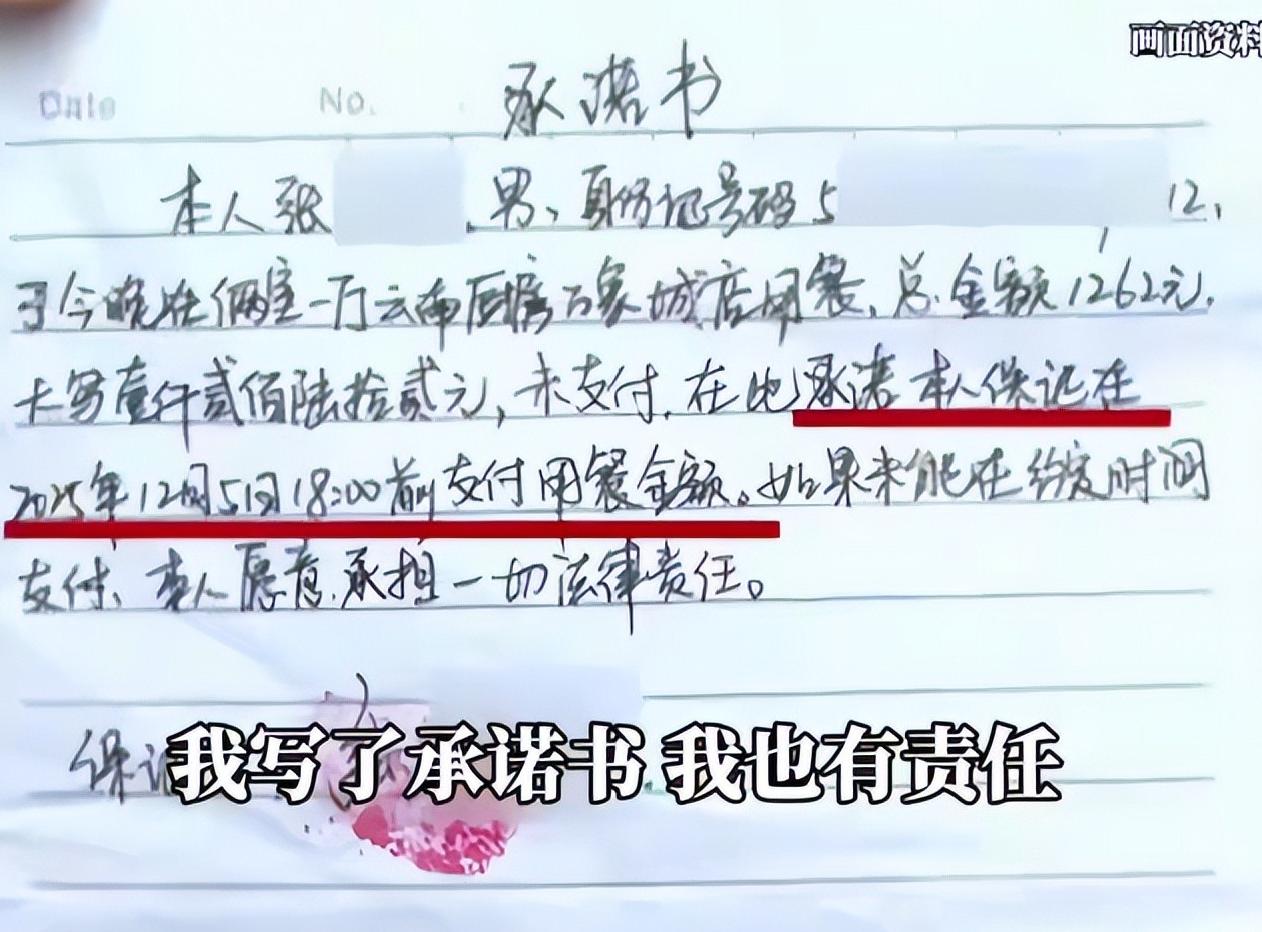 画面资料
Date No. 承诺书
本人张 ,男、身份证号码5 12,
于今晚在俩室一厅云南厨房万象城店用餐,总金额1262元,
大写壹仟贰佰陆拾贰元,未支付,在此承诺本人保证在
2025年12月5日18:00前支付用餐金额。如果未能在约定时间
支付、本人愿意承担一切法律责任。
保证
我写了承诺书 我也有责任